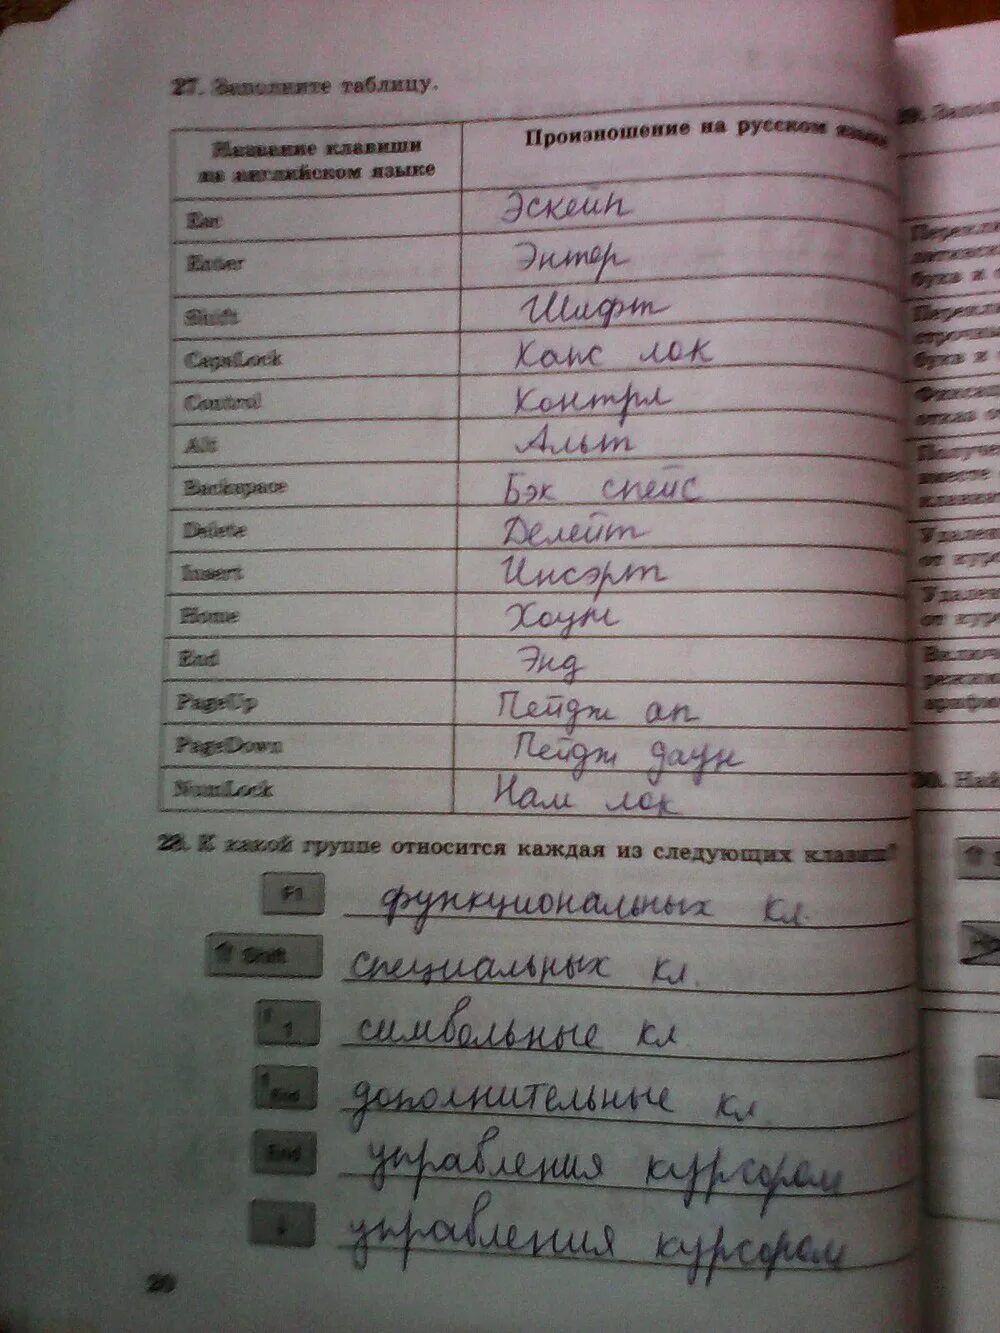 27. Заполните таблицу.
Название клавиши на английском языке
Произношение на русском языке
Esc Эскейп
Enter Энтер
Shift Шифт
CapsLock Капс лок
Control Контрл
Alt Альт
Backspace Бэк спейс
Delete Делейт
Insert Инсэрт
Home Хоум
End Энд
PageUp Пейдж ап
PageDown Пейдж даун
NumLock Нам лок
28. К какой группе относится каждая из следующих клавиш?
F1 функциональных кл.
⇧ Shift специальных кл.
1 символьные кл
1 End дополнительные кл.
End управления курсором
↓ управления курсором
20
29.
букв и
Получе
вместе
клавиш
Удален
от кур
Удален
от кур
Включ
режим
30. Най